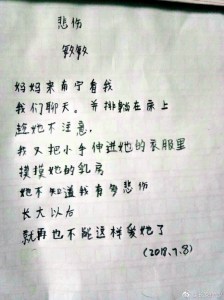 悲伤
敏敏
妈妈来南宁看我
我们聊天。并排躺在床上
趁她不注意,
我又把小手伸进她的衣服里
摸摸她的乳房
她不知道我有多悲伤
长大以后
就再也不能这样爱她了
(2018.7.8)